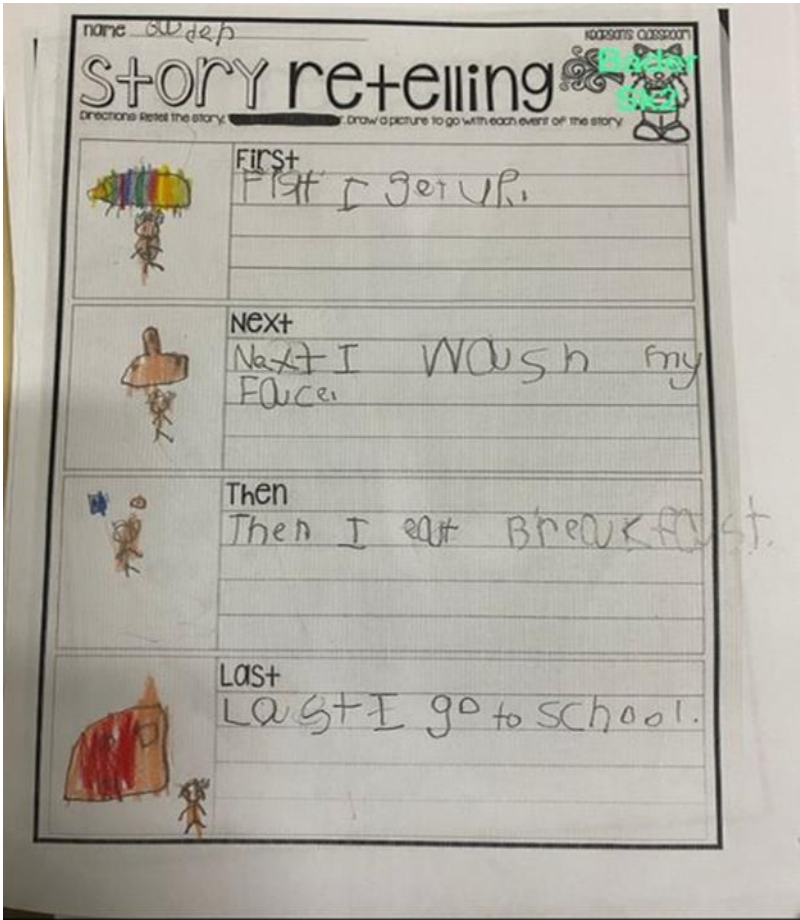 name
KEARSON'S CLASSROOM
Story retelling
Bader
Sk2
Directions: Retell the story, . Draw a picture to go with each event of the story.
First
I get up.
Next
Naxt I wash my
Face.
Then
Then I eat Breakfast.
Last
Last I go to school.